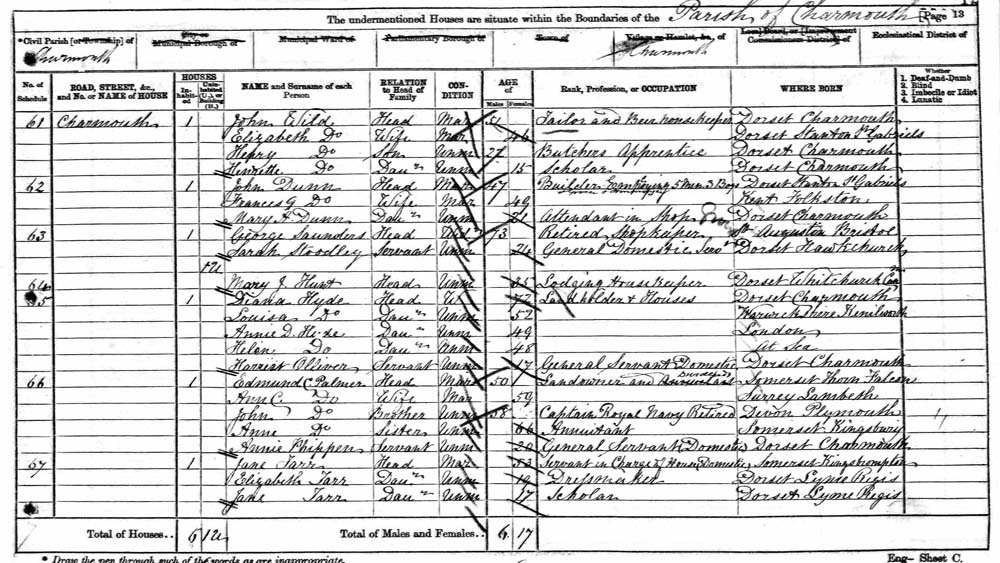 The undermentioned Houses are situate within the Boundaries of the Parish of Charmouth [Page 13
*Civil Parish [or Township] of City or Municipal Borough of Municipal Ward of Parliamentary Borough of Town of Village or Hamlet, &c., of Local Board, or [Improvement Commissioners District] of Ecclesiastical District of
Charmouth Charmouth
No. of Schedule ROAD, STREET, &c., and No. or NAME of HOUSE HOUSES Inhabited Uninhabited (U.), or Building (B.) NAME and Surname of each Person RELATION to Head of Family CONDITION AGE of Males Females Rank, Profession, or OCCUPATION WHERE BORN Whether 1. Deaf-and-Dumb 2. Blind 3. Imbecile or Idiot 4. Lunatic
61 Charmouth 1 John Wild Head Mar 51 Tailor and Beerhousekeeper Dorset Charmouth
Elizabeth Do Wife Mar 46 Dorset Stanton St Gabriels
Henry Do Son Unm 27 Butchers Apprentice Dorset Charmouth
Henrietta Do Daur Unm 15 Scholar Dorset Charmouth
62 1 John Dunn Head Mar 47 Builder Employing 5 Men 3 Boys Dorset Stanton St Gabriels
Frances G Do Wife Mar 49 Kent Folkston
Mary A Dunn Daur Unm 21 Attendant in Shop Dorset Charmouth
63 1 George Saunders Head 73 Retired Shopkeeper St Augustin Bristol
Sarah Stoodley Servant Unm 24 General Domestic Servt Dorset Hawkchurch
1U
64 Mary J Hunt Head Unm 35 Lodging Housekeeper Dorset Whitchurch
65 1 Diana Hyde Head W 72 Landholder & Houses Dorset Charmouth
Louisa Do Daur Unm 52 Warwickshire Kenilworth
Annie D. Hyde Daur Unm 49 London
Helen Do Daur Unm 48 At Sea
Harriet Olliver Servant Unm 17 General Servant Domestic Dorset Charmouth
66 1 Edmund C. Palmer Head Mar 50 Landowner and Somerset Thorn Falcon
Ann C. Do Wife Mar 59 Surrey Lambeth
John Do Brother Unm 58 Captain Royal Navy Retired Devon Plymouth
Anne Do Sister Unm 66 Annuitant Somerset Kingsbury
Annie Phippen Servant Unm 20 General Servant Domestic Dorset Charmouth
67 1 Jane Tarr Head Mar 53 Servant in Charge of House Domestic Somerset Kingsbrompton
Elizabeth Tarr Daur Unm 19 Dressmaker Dorset Lyme Regis
Jane Tarr Daur Unm 17 Scholar Dorset Lyme Regis
Total of Houses.. 6 1U Total of Males and Females.. 6 17
* Draw the pen through such of the words as are inappropriate. Eng– Sheet C.